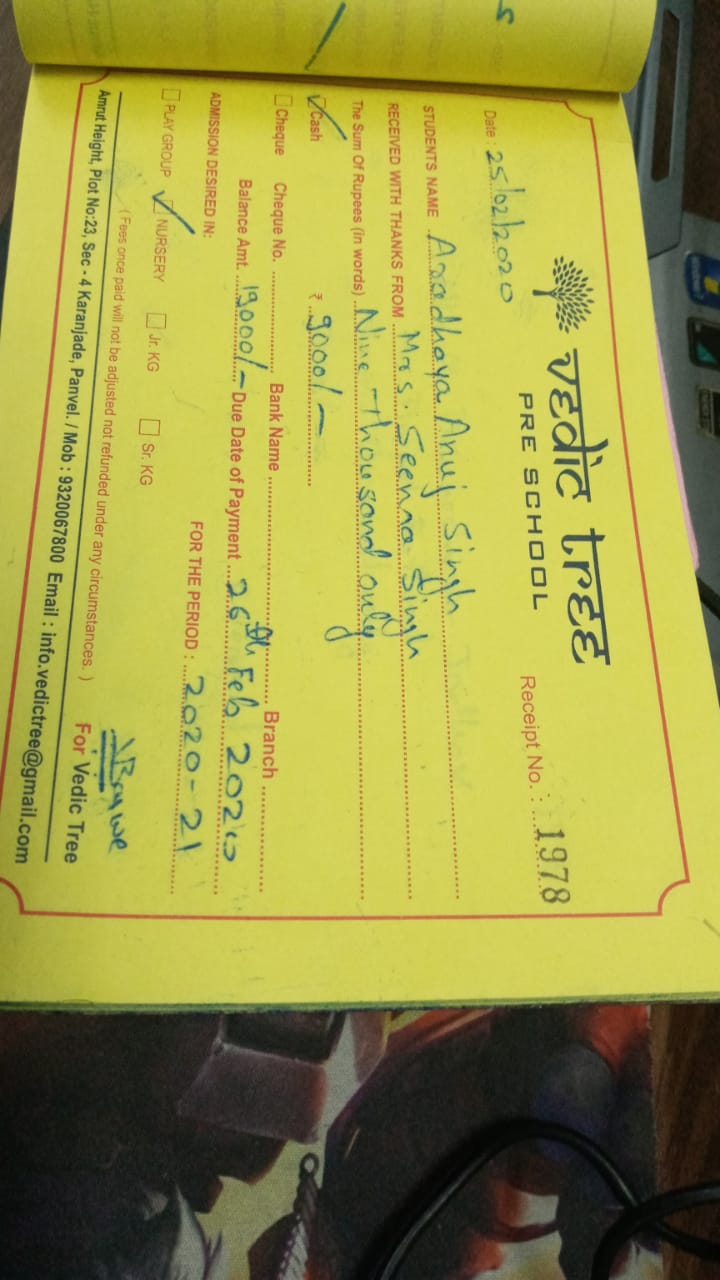 vedic tree
PRE SCHOOL
Receipt No. : 1978
Date : 25/02/2020
STUDENTS NAME Aradhaya Anuj Singh
RECEIVED WITH THANKS FROM Mrs. Seema Singh
The Sum Of Rupees (in words) Nine thousand only
Cash ₹ 9000/-
Cheque Cheque No. Bank Name Branch
Balance Amt. 19000/- Due Date of Payment 26th Feb 2020
ADMISSION DESIRED IN: FOR THE PERIOD : 2020-21
PLAY GROUP NURSERY Jr. KG Sr. KG
( Fees once paid will not be adjusted not refunded under any circumstances. ) For Vedic Tree
Amrut Height, Plot No:23, Sec - 4 Karanjade, Panvel. / Mob : 9320067800 Email : info.vedictree@gmail.com